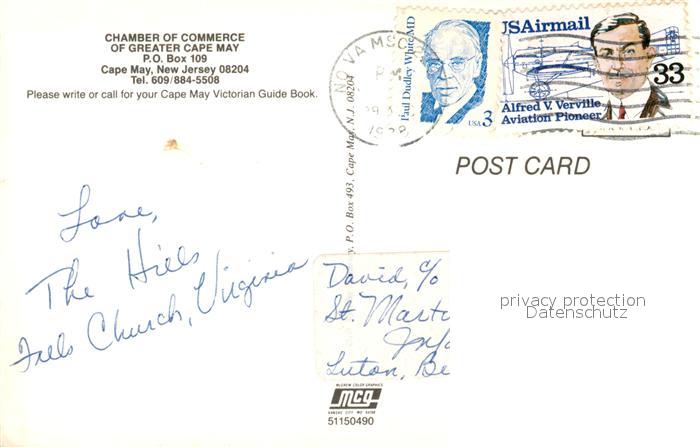 CHAMBER OF COMMERCE
OF GREATER CAPE MAY
P.O. Box 109
Cape May, New Jersey 08204
Tel. 609/884-5508
Please write or call for your Cape May Victorian Guide Book.
NO VA MSC
Paul Dudley White MD
USA 3
USAirmail
33
Alfred V. Verville
Aviation Pioneer
POST CARD
P.O. Box 493, Cape May, N.J. 08204
Love,
The Hills
Falls Church, Virginia
David, c/o
St. Mart
Info
Luton, Be
privacy protection
Datenschutz
McGREW COLOR GRAPHICS
mcg
KANSAS CITY MO 64108
51150490